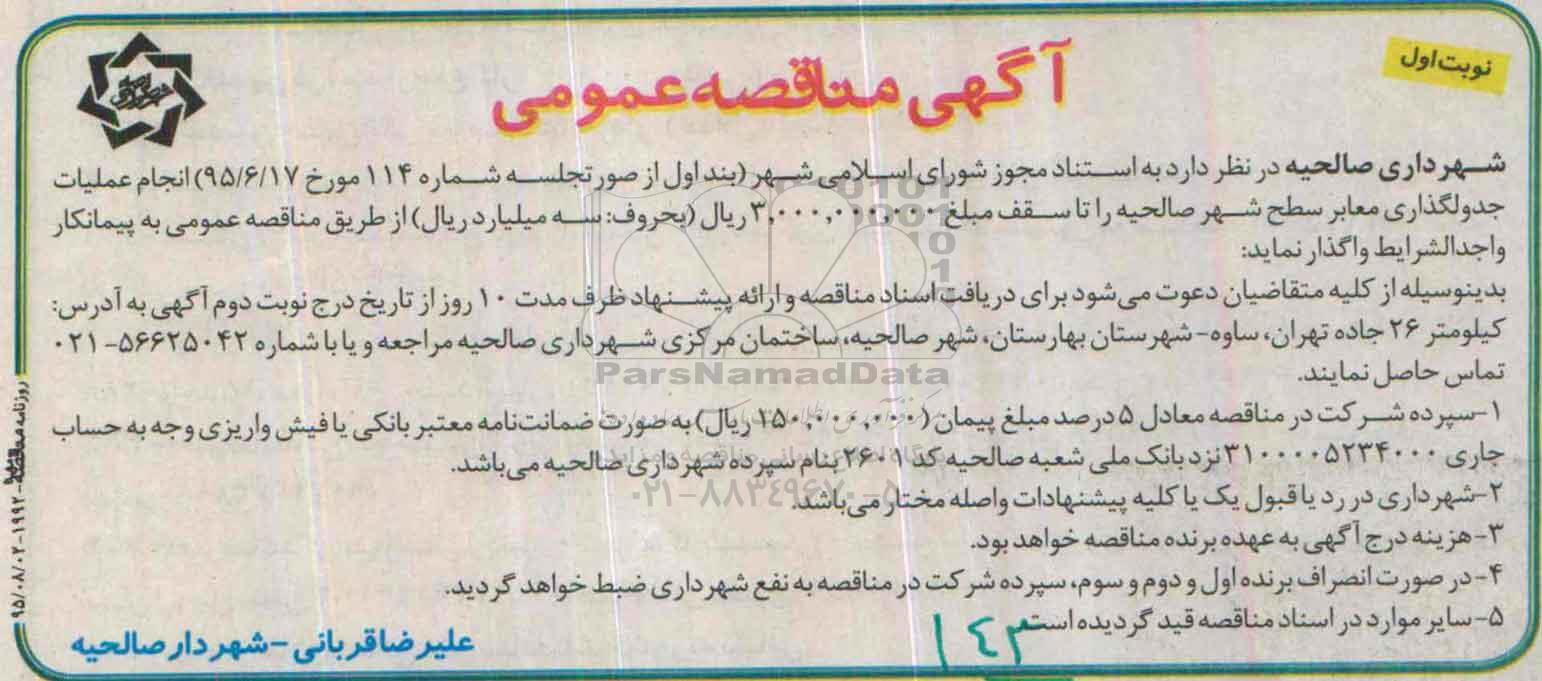 نوبت اول
آگهی مناقصه عمومی
شهرداری صالحیه در نظر دارد به استناد مجوز شورای اسلامی شهر (بند اول از صورتجلسه شماره ۱۱۴ مورخ ۹۵/۶/۱۷) انجام عملیات
جدولگذاری معابر سطح شهر صالحیه را تا سقف مبلغ ۳,۰۰۰,۰۰۰,۰۰۰ ریال (بحروف: سه میلیارد ریال) از طریق مناقصه عمومی به پیمانکار
واجدالشرایط واگذار نماید:
بدینوسیله از کلیه متقاضیان دعوت می‌شود برای دریافت اسناد مناقصه و ارائه پیشنهاد ظرف مدت ۱۰ روز از تاریخ درج نوبت دوم آگهی به آدرس:
کیلومتر ۲۶ جاده تهران، ساوه- شهرستان بهارستان، شهر صالحیه، ساختمان مرکزی شهرداری صالحیه مراجعه و یا با شماره ۵۶۶۲۵۰۴۲-۰۲۱
تماس حاصل نمایند.
ParsNamadData
۱-سپرده شرکت در مناقصه معادل ۵ درصد مبلغ پیمان (۱۵۰,۰۰۰,۰۰۰ ریال) به صورت ضمانت‌نامه معتبر بانکی یا فیش واریزی وجه به حساب
جاری ۳۱۰۰۰۰۵۲۳۴۰۰۰ نزد بانک ملی شعبه صالحیه کد ۲۶۰۱ بنام سپرده شهرداری صالحیه می‌باشد.
۲-شهرداری در رد یا قبول یک یا کلیه پیشنهادات واصله مختار می‌باشد.
۰۲۱-۸۸۳۴۹۶۷۰-۵
۳-هزینه درج آگهی به عهده برنده مناقصه خواهد بود.
۴-در صورت انصراف برنده اول و دوم و سوم، سپرده شرکت در مناقصه به نفع شهرداری ضبط خواهد گردید.
۵-سایر موارد در اسناد مناقصه قید گردیده است.
۱۴۳
علیرضا قربانی -شهردار صالحیه
۹۵/۰۸/۰۲-۱۹۹۲